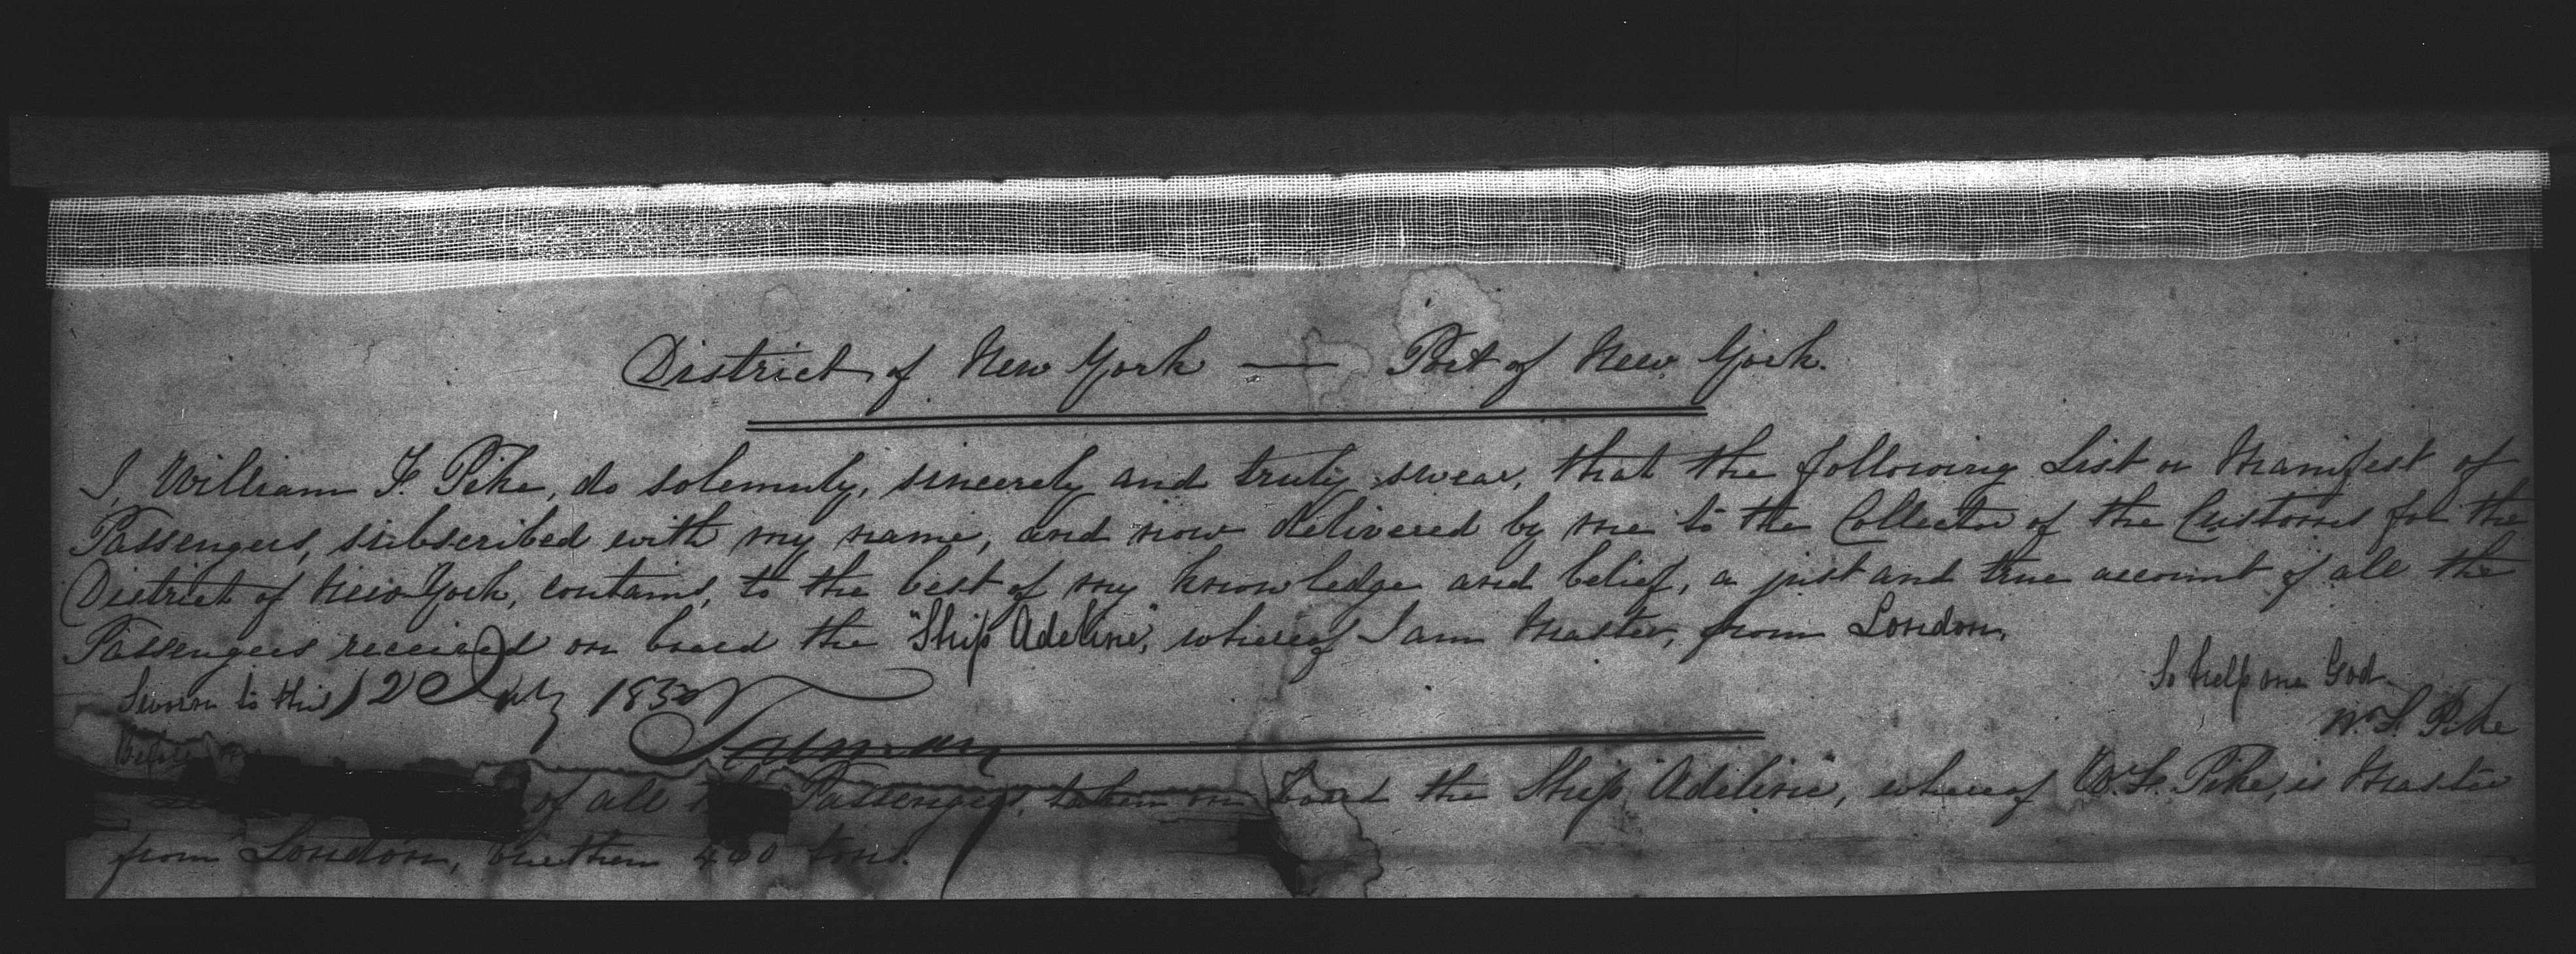 District of New York — Port of New York.
I, William F. Pike, do solemnly, sincerely and truly swear, that the following List or Manifest of
Passengers, subscribed with my name, and now delivered by me to the Collector of the Customs for the
District of New York, contains, to the best of my knowledge and belief, a just and true account of all the
Passengers received on board the "Ship Adeline", whereof I am Master, from London.
So help me God.
Sworn to this 12 July 1830
W. F. Pike
Before
of all the Passengers, taken on board the Ship "Adeline", whereof W. F. Pike, is Master
from London, burthern 400 tons.